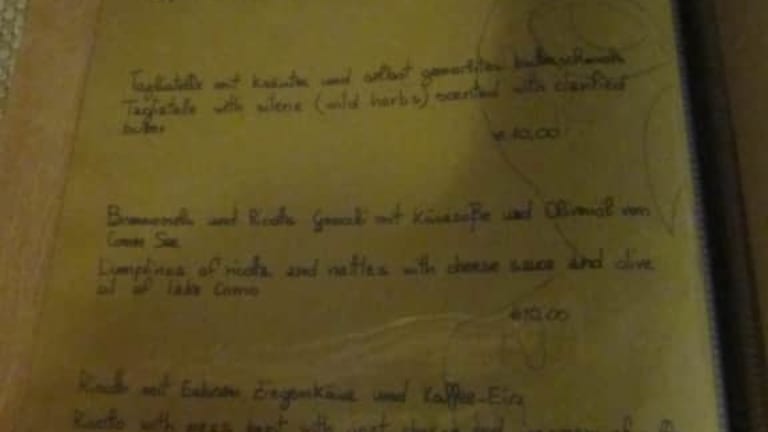 Tagliatelle mit Kräuter und selbst gemachtes Butterschmalz
Tagliatelle with silene (wild herbs) scented with clarified
butter
€ 10,00
Brennnesseln und Ricotta Gnocchi mit Käsesoße und Olivenöl von
Como See
Dumplings of ricotta and nettles with cheese sauce and olive
oil of lake Como
€10,00
mit Erbsen Ziegenkäse und Kaffee-Eis
with peas with goat cheese and